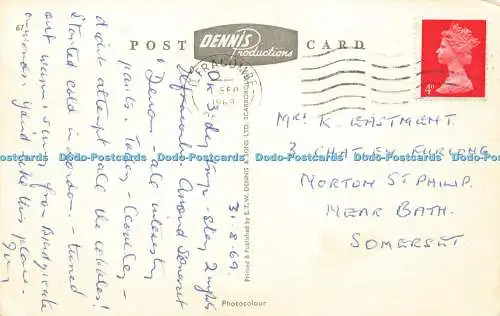 POST CARD
DENNIS
Productions
ILFRACOMBE
SEP
1969
4D
31.8.69.
On 3 day trip - stay 2 nights
Ilfracombe. Around Somerset
& Devon - all interesting
parts. Torquay - Clovelly -
didn't attempt all the cobbles!
Started cold in London - turned
out warm & sunny from
onwards. You'd like this place.
Mrs K. EASTMENT.
3 CHATLEY FURLONG
NORTON ST PHILIP.
NEAR BATH.
SOMERSET.
Printed & Published by E.T.W. DENNIS & SONS LTD. SCARBOROUGH
Photocolour
Dodo-Postcards Dodo-Postcards Dodo-Postcards Dodo-Postcards Dodo-Postcards Dodo-Postcards